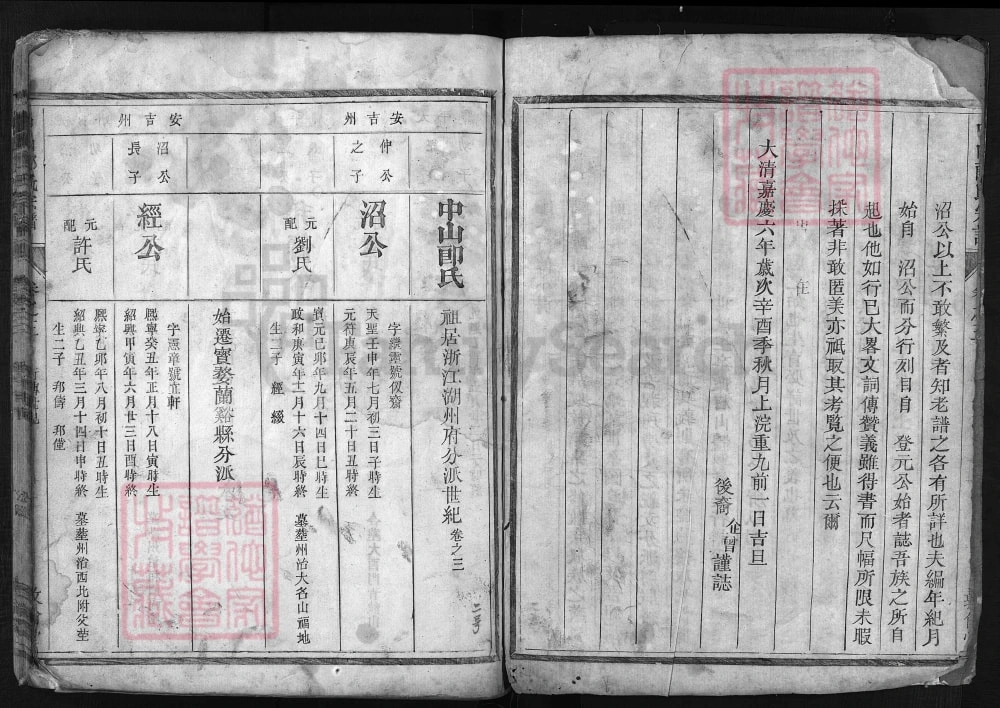 沼公以上不敢繁及者知老譜之各有所詳也夫編年紀月
始自 沼公而分行列自 登元公始者誌吾族之所自
起也他如行巳大畧文詞傳贊義雖得書而尺幅所限未暇
採著非敢匿美亦祇取其考覧之便也云爾
大清嘉慶六年歲次辛酉季秋月上浣重九前一日吉旦
後裔 謹誌
中山郎氏
祖居浙江湖州府分派世紀 卷之三
安吉州
仲公之子
沼公
字 號仪齋
天聖壬申年七月初三日子時生
元符庚辰年五月二十日丑時終
元配 劉氏
寶元巳卯年九月十四日巳時生
政和庚寅年二月十六日辰時終 墓塟州治大名山福地
生二子 經 綴
始遷寳婺蘭谿縣分派
安吉州
沼公長子
經公
字憲章號直軒
熙寧癸丑年正月十八日寅時生
紹興甲寅年六月廿三日酉時終
元配 許氏
熙寧乙卯年八月初十日丑時生
紹興乙丑年三月十四日申時終 墓塟州治西北附父塋
生二子 邦儔 邦僅
二号
FamilySearch